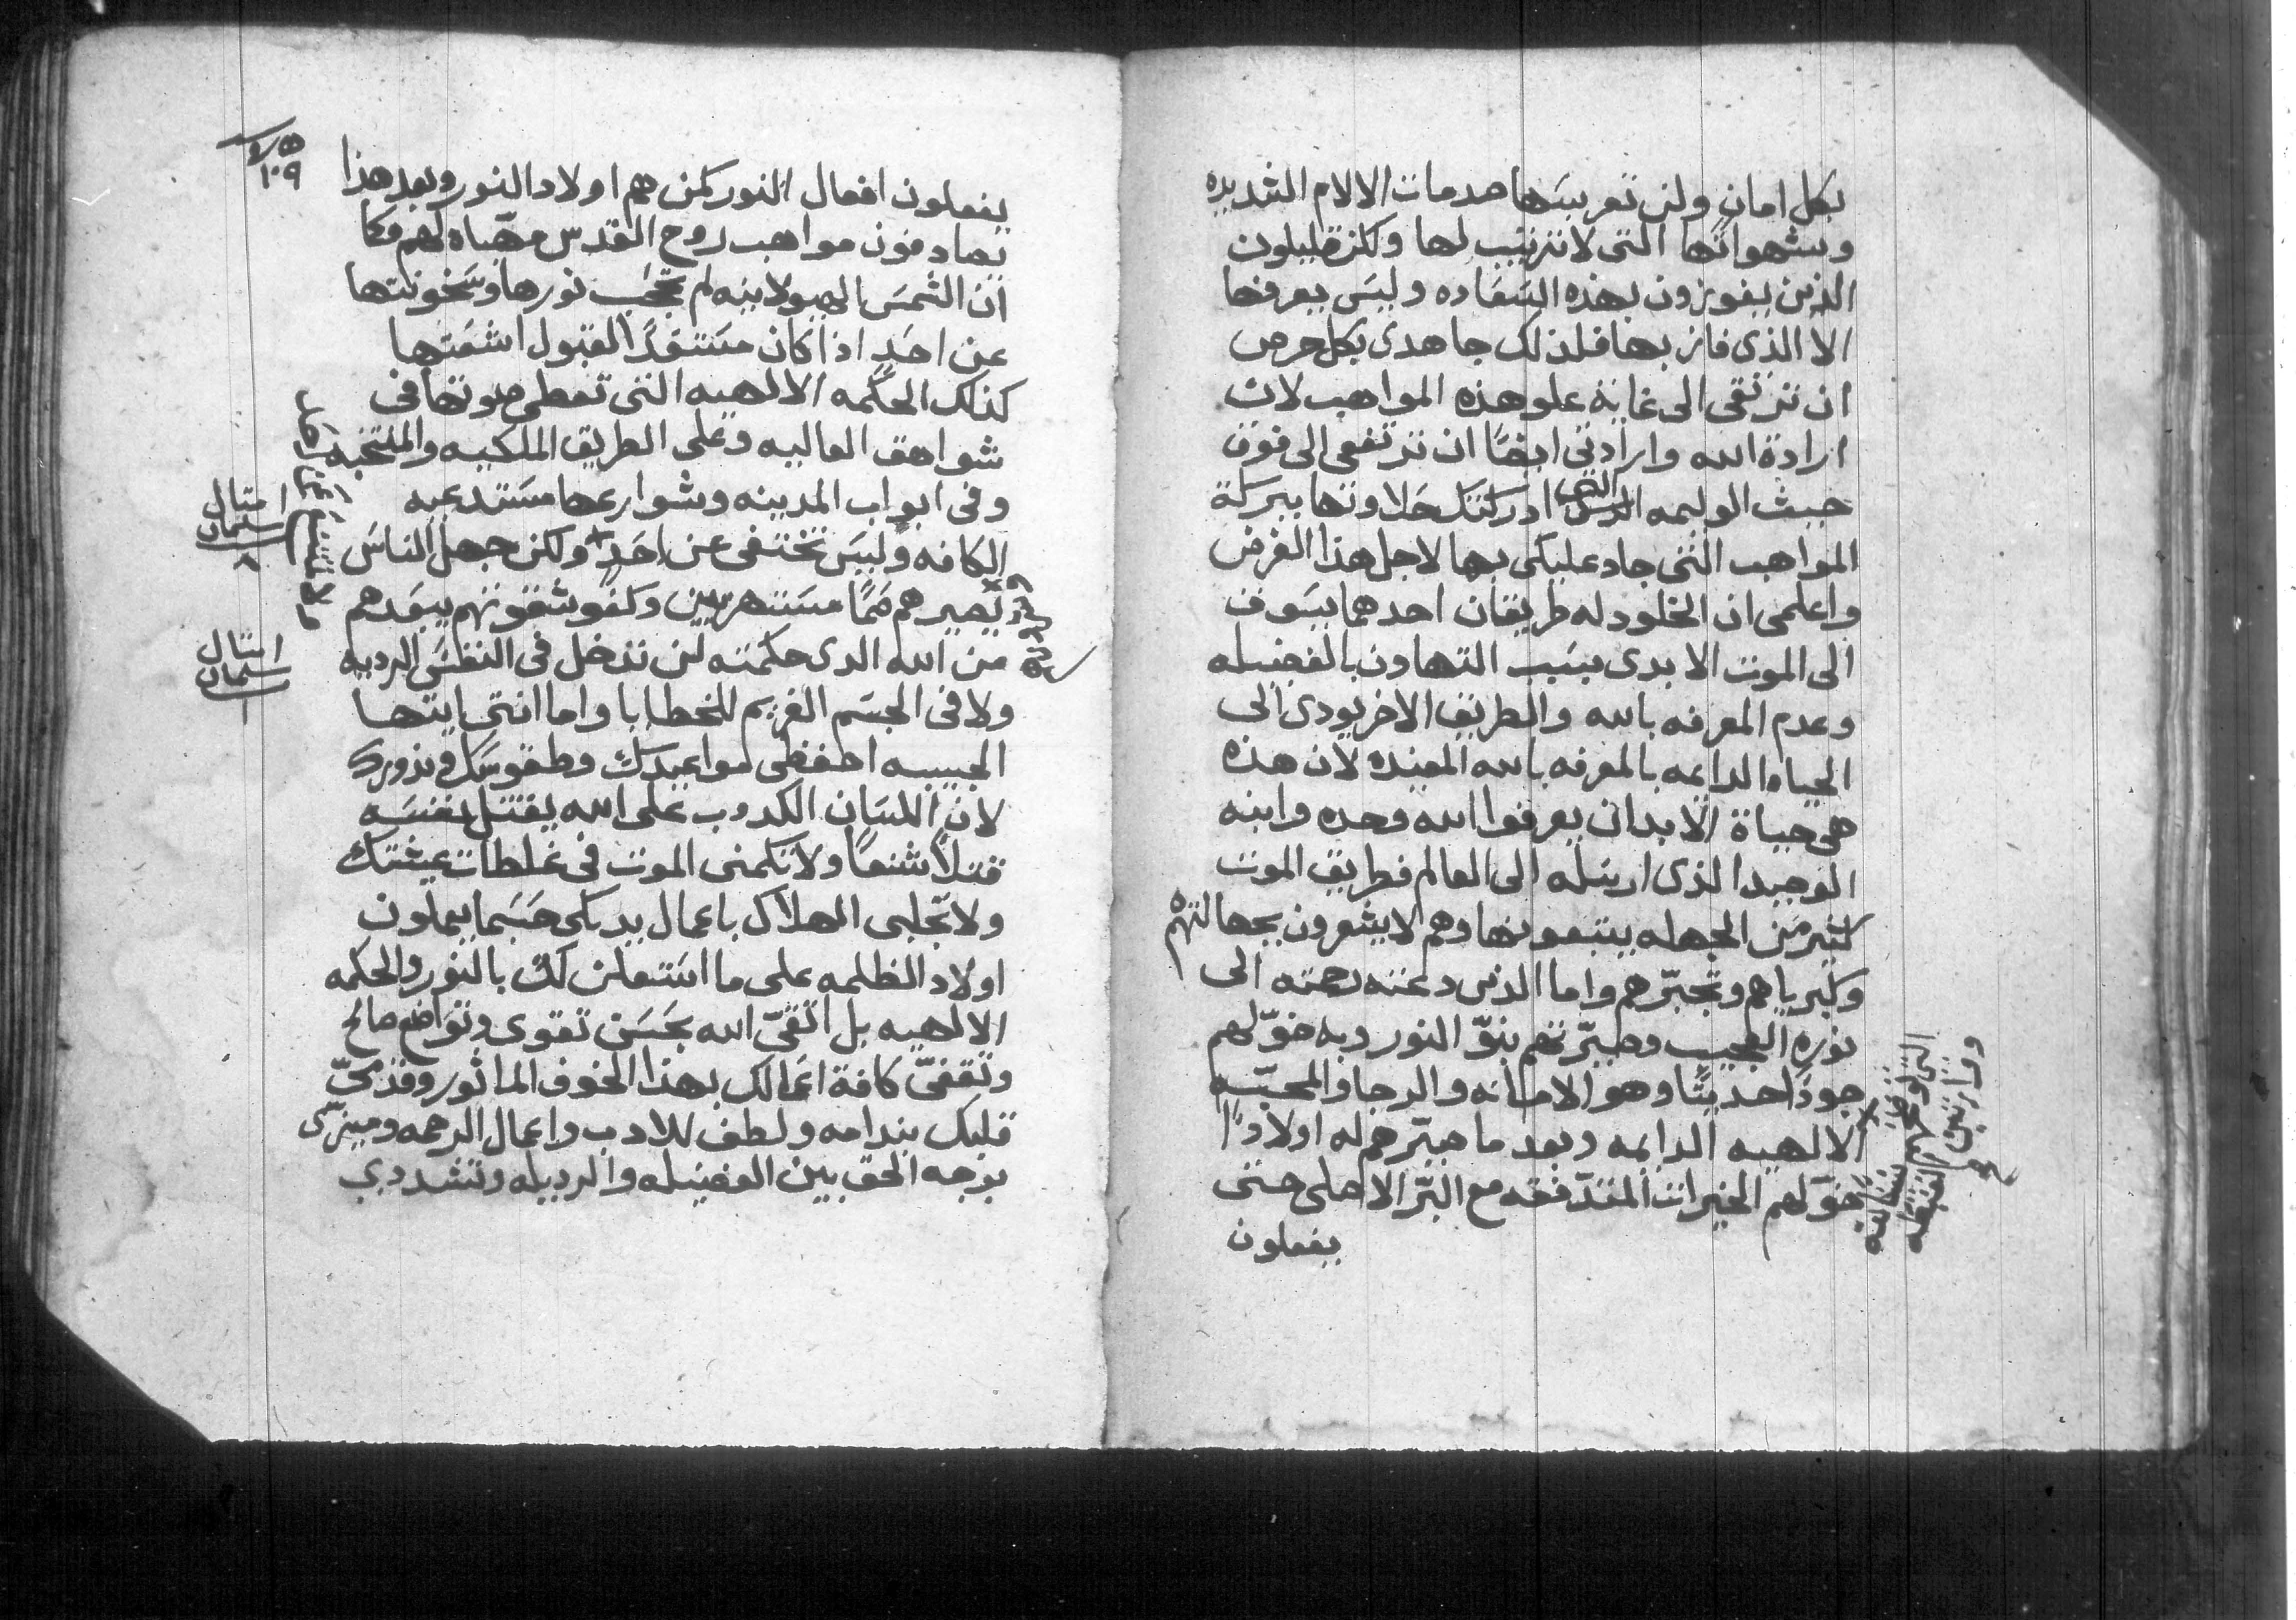 بكل امان ولن تعريسها صدمات الالام الشديده
وشهواتها التى لا ترتيب لها ولكن قليلون
الذين يفوزون بهذه السعاده وليس يعرفها
الا الذى فاز بها فلذلك جاهدى بكل حرص
ان ترتقى الى غاية علو هذه المواهب لان
ارادة الله وارادتى ايضًا ان ترتقعى الى فوق
حيث الوليمه التى ادركتك حلاوتها ببركة
المواهب التى جاد عليكى بها لاجل هذا الغرض
واعلمى ان الخلود له طريقان احدهما يسوق
الى الموت الابدى بسبب التهاون بالفضيله
وعدم المعرفه بالله والطريق الاخر يودى الى
الحياه الدايمه بالمعرفه بالله المفيده لان هذه
هى حياة الابد ان يعرفوا الله وحده وابنه
الوحيد الذى ارسله الى العالم فطريق الموت
كثير من الجهله يتبعونها وهم لا يشعرون بجهالتهم
وكبرياهم وتجبّرهم واما الذين دعته رحمته الى
نوره العجيب وصيّرتهم بنوّ النور وبه خوّلهم
جودًا حديثًا وهو الامانه والرجا والمحبّه
الالهيه الدايمه وبعد ما صيّرهم له اولادًا
خوّلهم الخيرات المتدفقه مع البّر الاهلى حتى
يفعلون
١٠٩
يفعلون افعال النور كمن هم اولاد النور وبعد هذا
يصادفون مواهب روح القدس مهيّاه لهم فكما
ان الشمس الهيولانيه لم تحجب نورها وسخونتها
عن احدٍ اذا كان مستعدًا لقبول اشعتها
كذلك الحكمه الالهيه التى تعطى صوتها فى
شواهق العاليه وعلى الطريق الملكيه والمنتخبه
وفى ابواب المدينه وشوارعها مستدعيه
الكافه وليس تختفى عن احدٍ ولكن جهل الناس
يصيرهم صمًا مستهزيين وكفو شقوتهم يبعدهم
من الله الدى حكمته لن تدخل فى النفس الرديه
ولا فى الجسم الغريم للخطايا واما انتى ايتها
الحبيبه احفظى مواعيدك وطقوسك ونذورك
لان اللسان الكدوب على الله يقتل نفسه
قتلاً شنعًا ولا تكمنى الموت فى غلطات عيشتك
ولا تجلبى الهلاك باعمال يديكى حسبما يعملون
اولاد الظلمه على ما استعلن لك بالنور والحكمه
الالهيه بل اتقىّ الله بحسن تقوى وتواضع صالح
وتقفىّ كافة اعمالك بهذا الخوف الماثور وقدّمىّ
قلبك بندامه ولطف للادب واعمال الرحمه وميزّى
بوجه الحق بين الفضيله والرديله وتشددى
امتال
سليمان
٨
امتال
سليمان
١